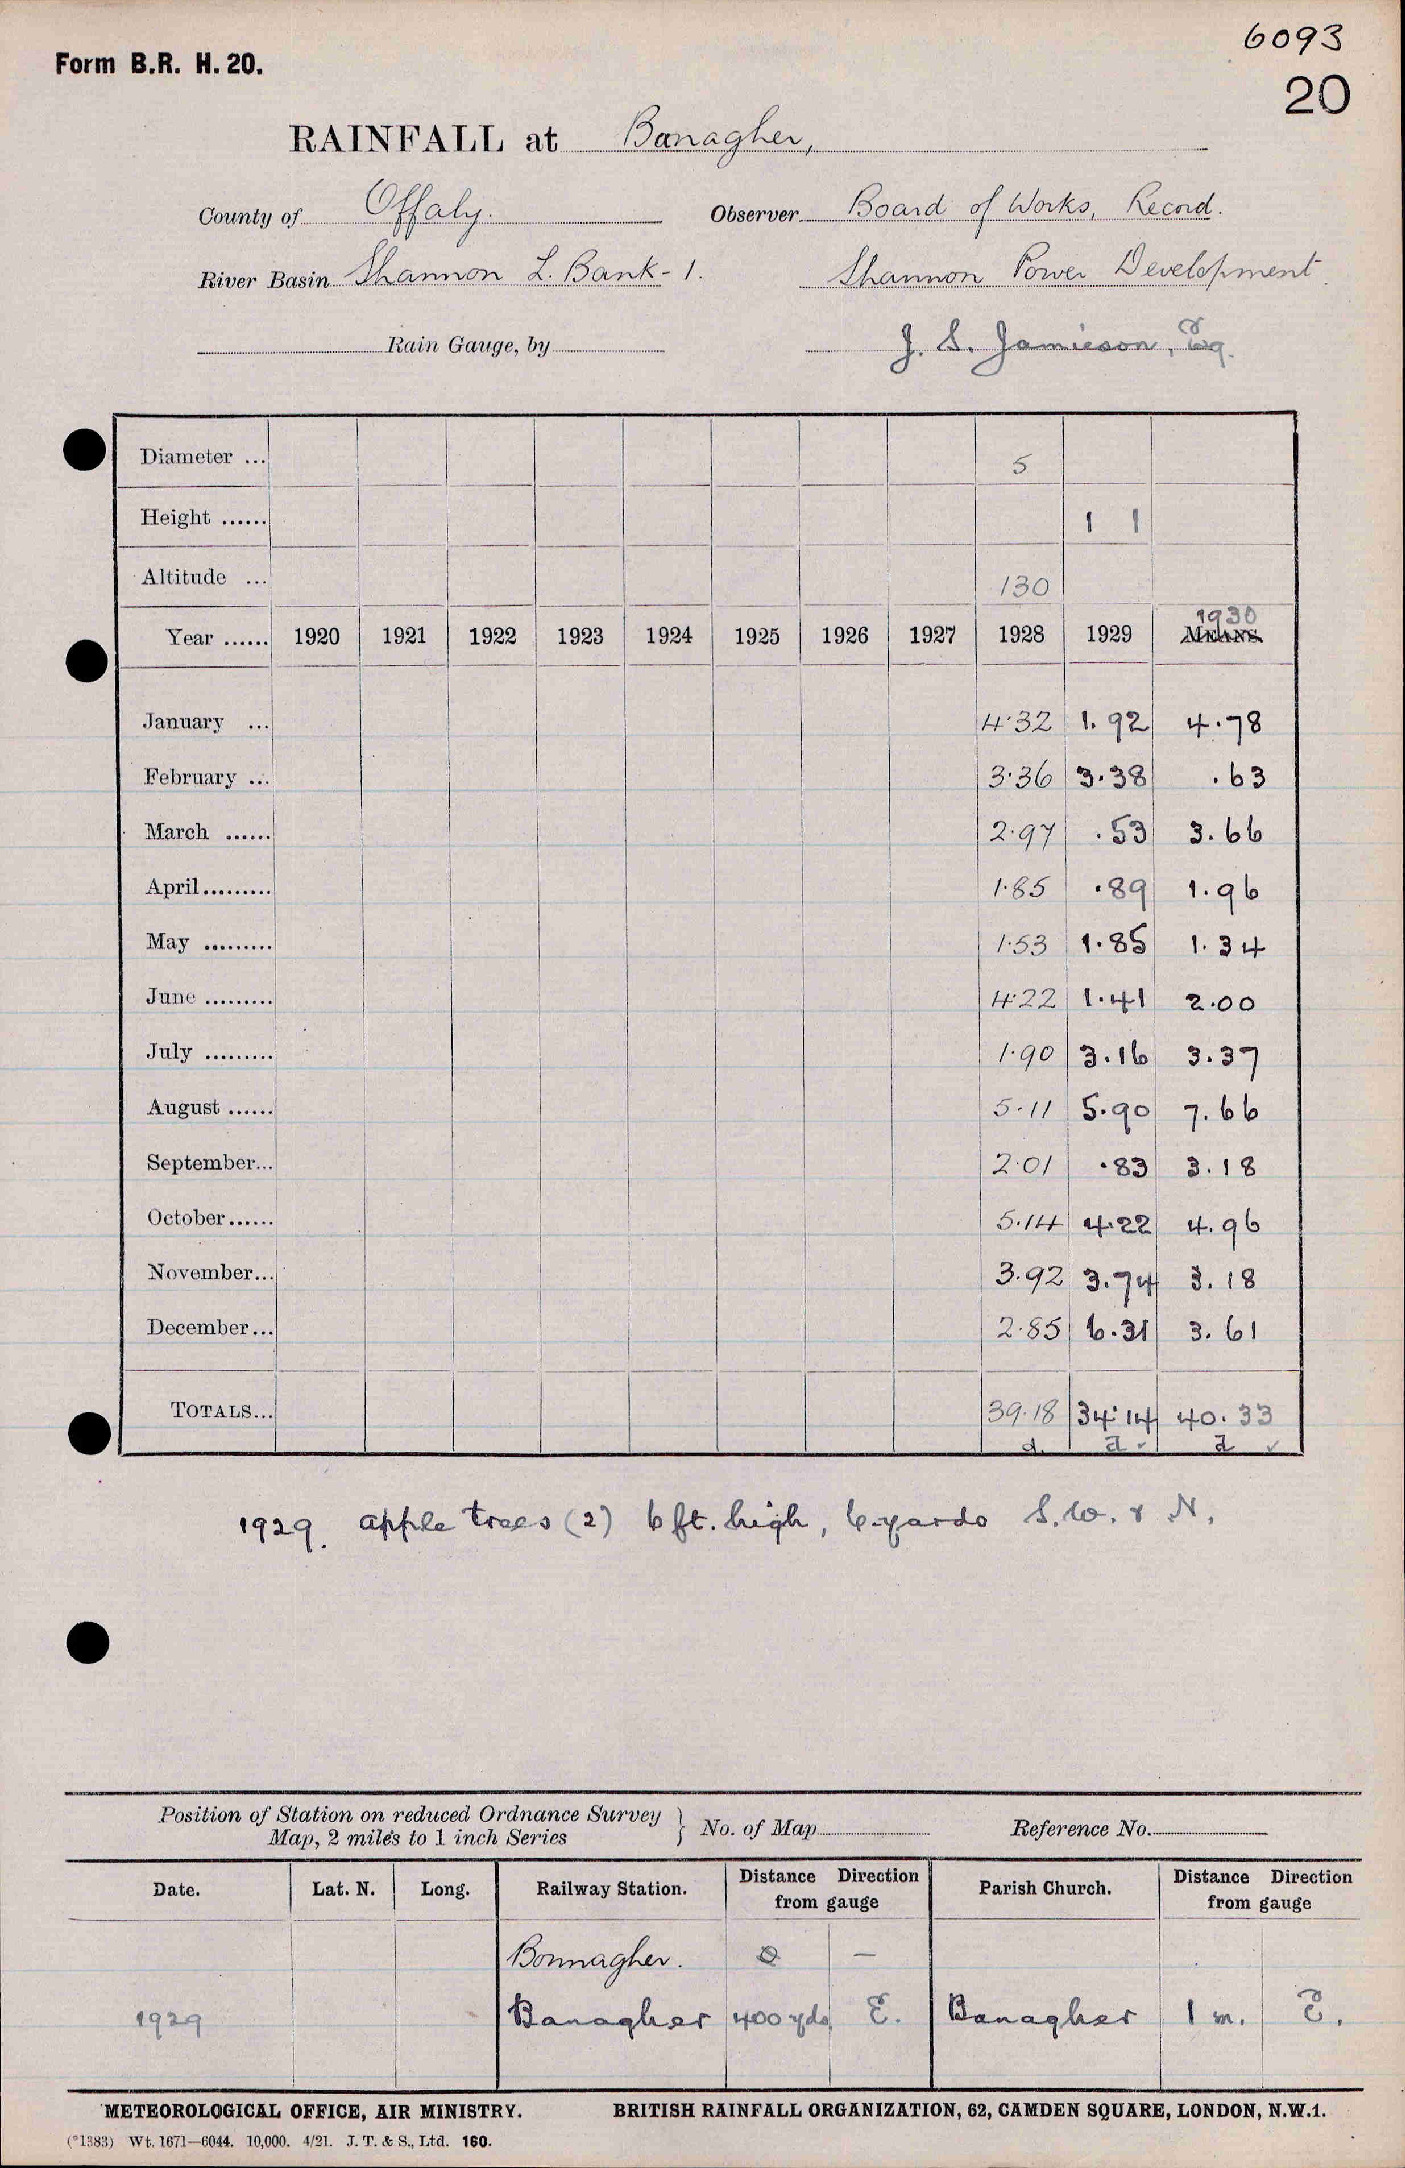 6093
Form B.R. H. 20.
20
RAINFALL at Banagher,
County of Offaly. Observer Board of Works, Record.
River Basin Shannon L. Bank - 1. Shannon Power Development
Rain Gauge, by J. S. Jamieson, Esq.
Diameter ... 5
Height ...... 1 1
Altitude ... 130
1930
Year ...... 1920 1921 1922 1923 1924 1925 1926 1927 1928 1929 MEANS.
January ... 4·32 1.92 4.78
February ... 3·36 3.38 .63
March ...... 2·97 .53 3.66
April......... 1·85 .89 1.96
May ......... 1·53 1.85 1.34
June ......... 4·22 1.41 2.00
July ......... 1·90 3.16 3.37
August ...... 5·11 5.90 7.66
September... 2·01 .83 3.18
October...... 5.14 4.22 4.96
November... 3.92 3.74 3.18
December... 2·85 6.31 3.61
TOTALS... 39·18 34·14 40.33
d. a ✓ a ✓
1929. apple trees (2) 6 ft. high, 6 yards S.W. & N.
Position of Station on reduced Ordnance Survey
Map, 2 miles to 1 inch Series } No. of Map Reference No.
Date. Lat. N. Long. Railway Station. Distance Direction from gauge Parish Church. Distance Direction from gauge
Bonnagher. 0 —
1929 Banagher 400 yds E. Banagher 1 m. E.
METEOROLOGICAL OFFICE, AIR MINISTRY. BRITISH RAINFALL ORGANIZATION, 62, CAMDEN SQUARE, LONDON, N.W.1.
(*1383) Wt. 1671—6044. 10,000. 4/21. J. T. & S., Ltd. 160.